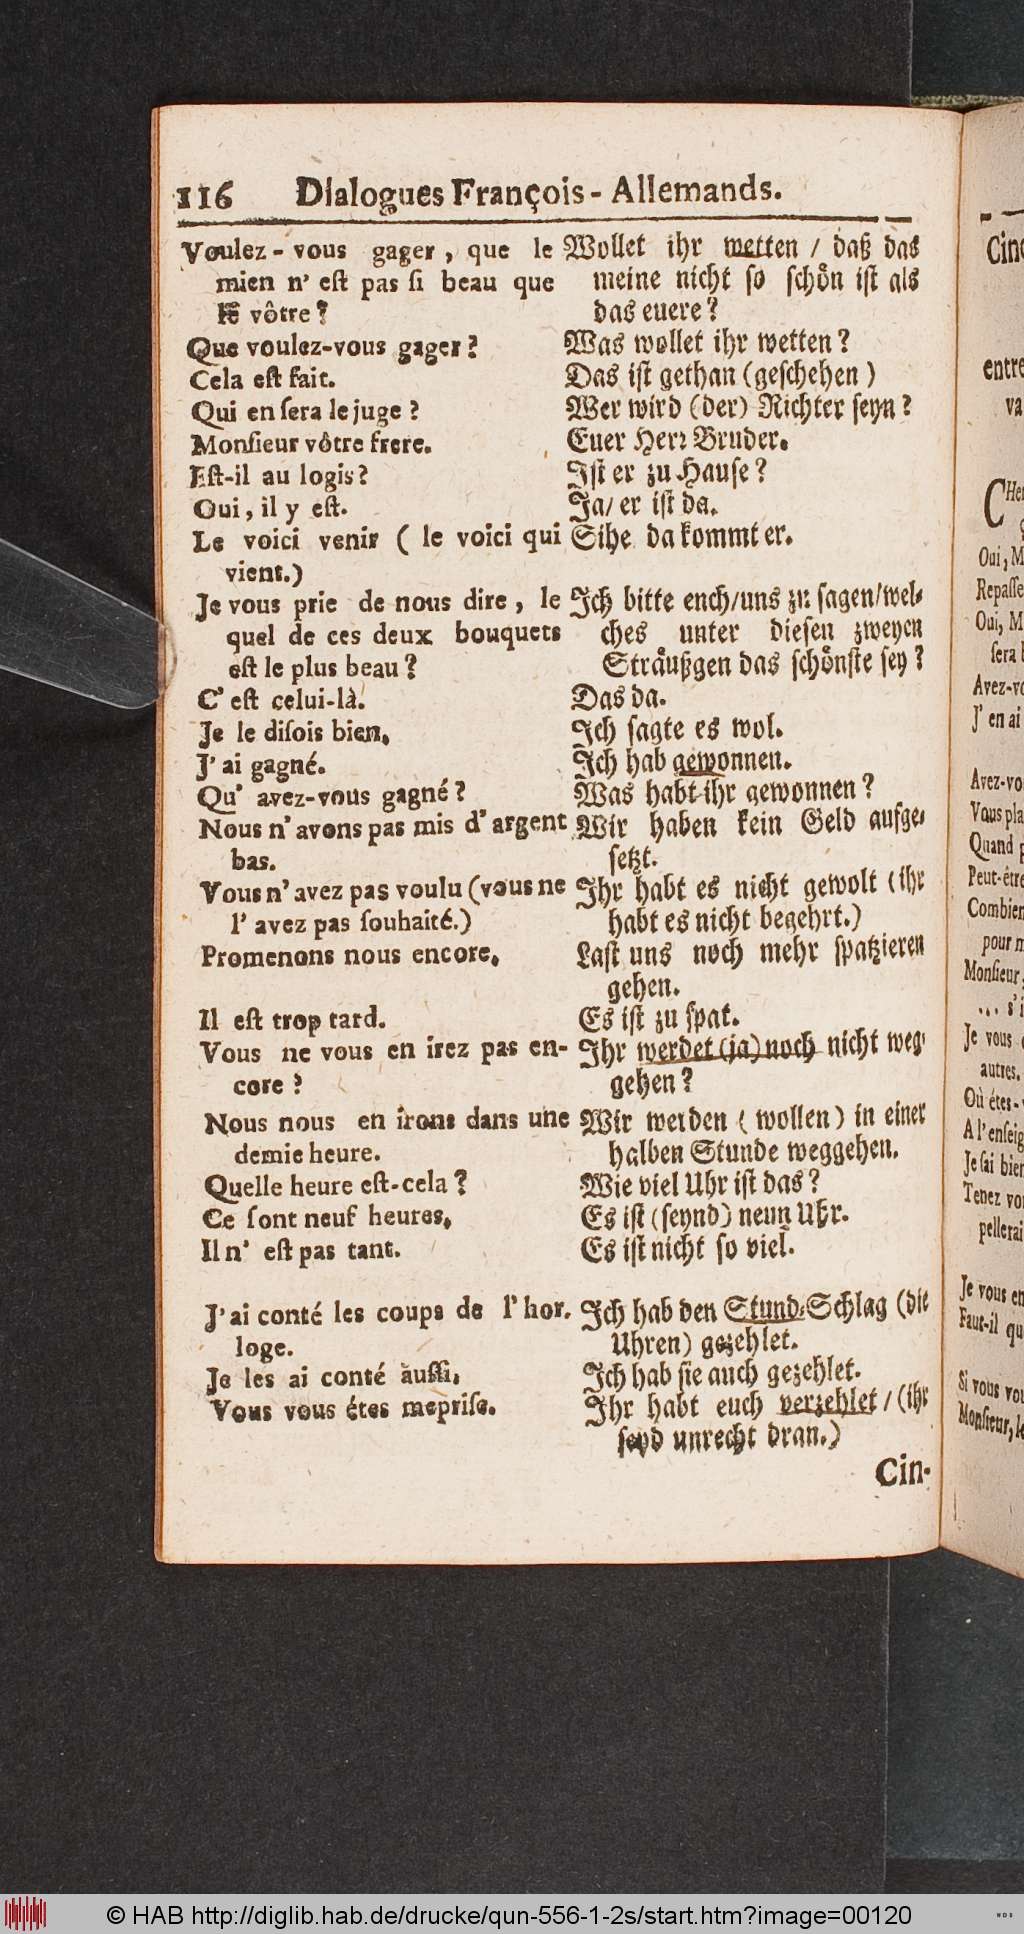 116 Dialogues François - Allemands.
Voulez-vous gager, que le
mien n'eſt pas ſi beau que
le vôtre?
Que voulez-vous gager?
Cela eſt fait.
Qui en ſera le juge?
Monſieur vôtre frere.
Eſt-il au logis?
Oui, il y eſt.
Le voici venir ( le voici qui
vient.)
Je vous prie de nous dire, le
quel de ces deux bouquets
eſt le plus beau?
C'eſt celui-là.
Je le diſois bien.
J'ai gagné.
Qu' avez-vous gagné?
Nous n'avons pas mis d'argent
bas.
Vous n'avez pas voulu (vous ne
l'avez pas ſouhaité.)
Promenons nous encore.
Il eſt trop tard.
Vous ne vous en irez pas en-
core?
Nous nous en irons dans une
demie heure.
Quelle heure eſt-cela?
Ce ſont neuf heures.
Il n' eſt pas tant.
J'ai conté les coups de l'hor.
loge.
Je les ai conté auſſi.
Vous vous étes mepriſe.
Wollet ihr wetten / daß das
meine nicht ſo ſchoͤn iſt als
das euere?
Was wollet ihr wetten?
Das iſt gethan (geſchehen)
Wer wird (der) Richter ſeyn?
Euer Herr Bruder.
Iſt er zu Hauſe?
Ja/ er iſt da.
Sihe da kommt er.
Ich bitte ench/uns zu ſagen/wel-
ches unter dieſen zweyen
Straͤußgen das ſchoͤnſte ſey?
Das da.
Ich ſagte es wol.
Ich hab gewonnen.
Was habt ihr gewonnen?
Wir haben kein Geld aufge-
ſetzt.
Ihr habt es nicht gewolt (ihr
habt es nicht begehrt.)
Laſt uns noch mehr ſpatzieren
gehen.
Es iſt zu ſpat.
Ihr werdet (ja) noch nicht weg-
gehen?
Wir werden ( wollen ) in einer
halben Stunde weggehen.
Wie viel Uhr iſt das?
Es iſt (ſeynd) neun Uhr.
Es iſt nicht ſo viel.
Ich hab den Stund-Schlag (die
Uhren) gezehlet.
Ich hab ſie auch gezehlet.
Ihr habt euch verzehlet / (ihr
ſeyd unrecht dran.)
Cin-
Oui, M
Repaſſe
Oui, M
Avez-vo
J' en ai
Avez-vo
Vous pla
Quand p
Peut-être
Combien
pour m
Monſieur,
Je vous
autres.
Où étes-
A l'enſeig
Je ſai bien
Tenez vo
pellerai
Je vous en
Faut-il qu
Si vous vou
Monſieur, le
© HAB http://diglib.hab.de/drucke/qun-556-1-2s/start.htm?image=00120